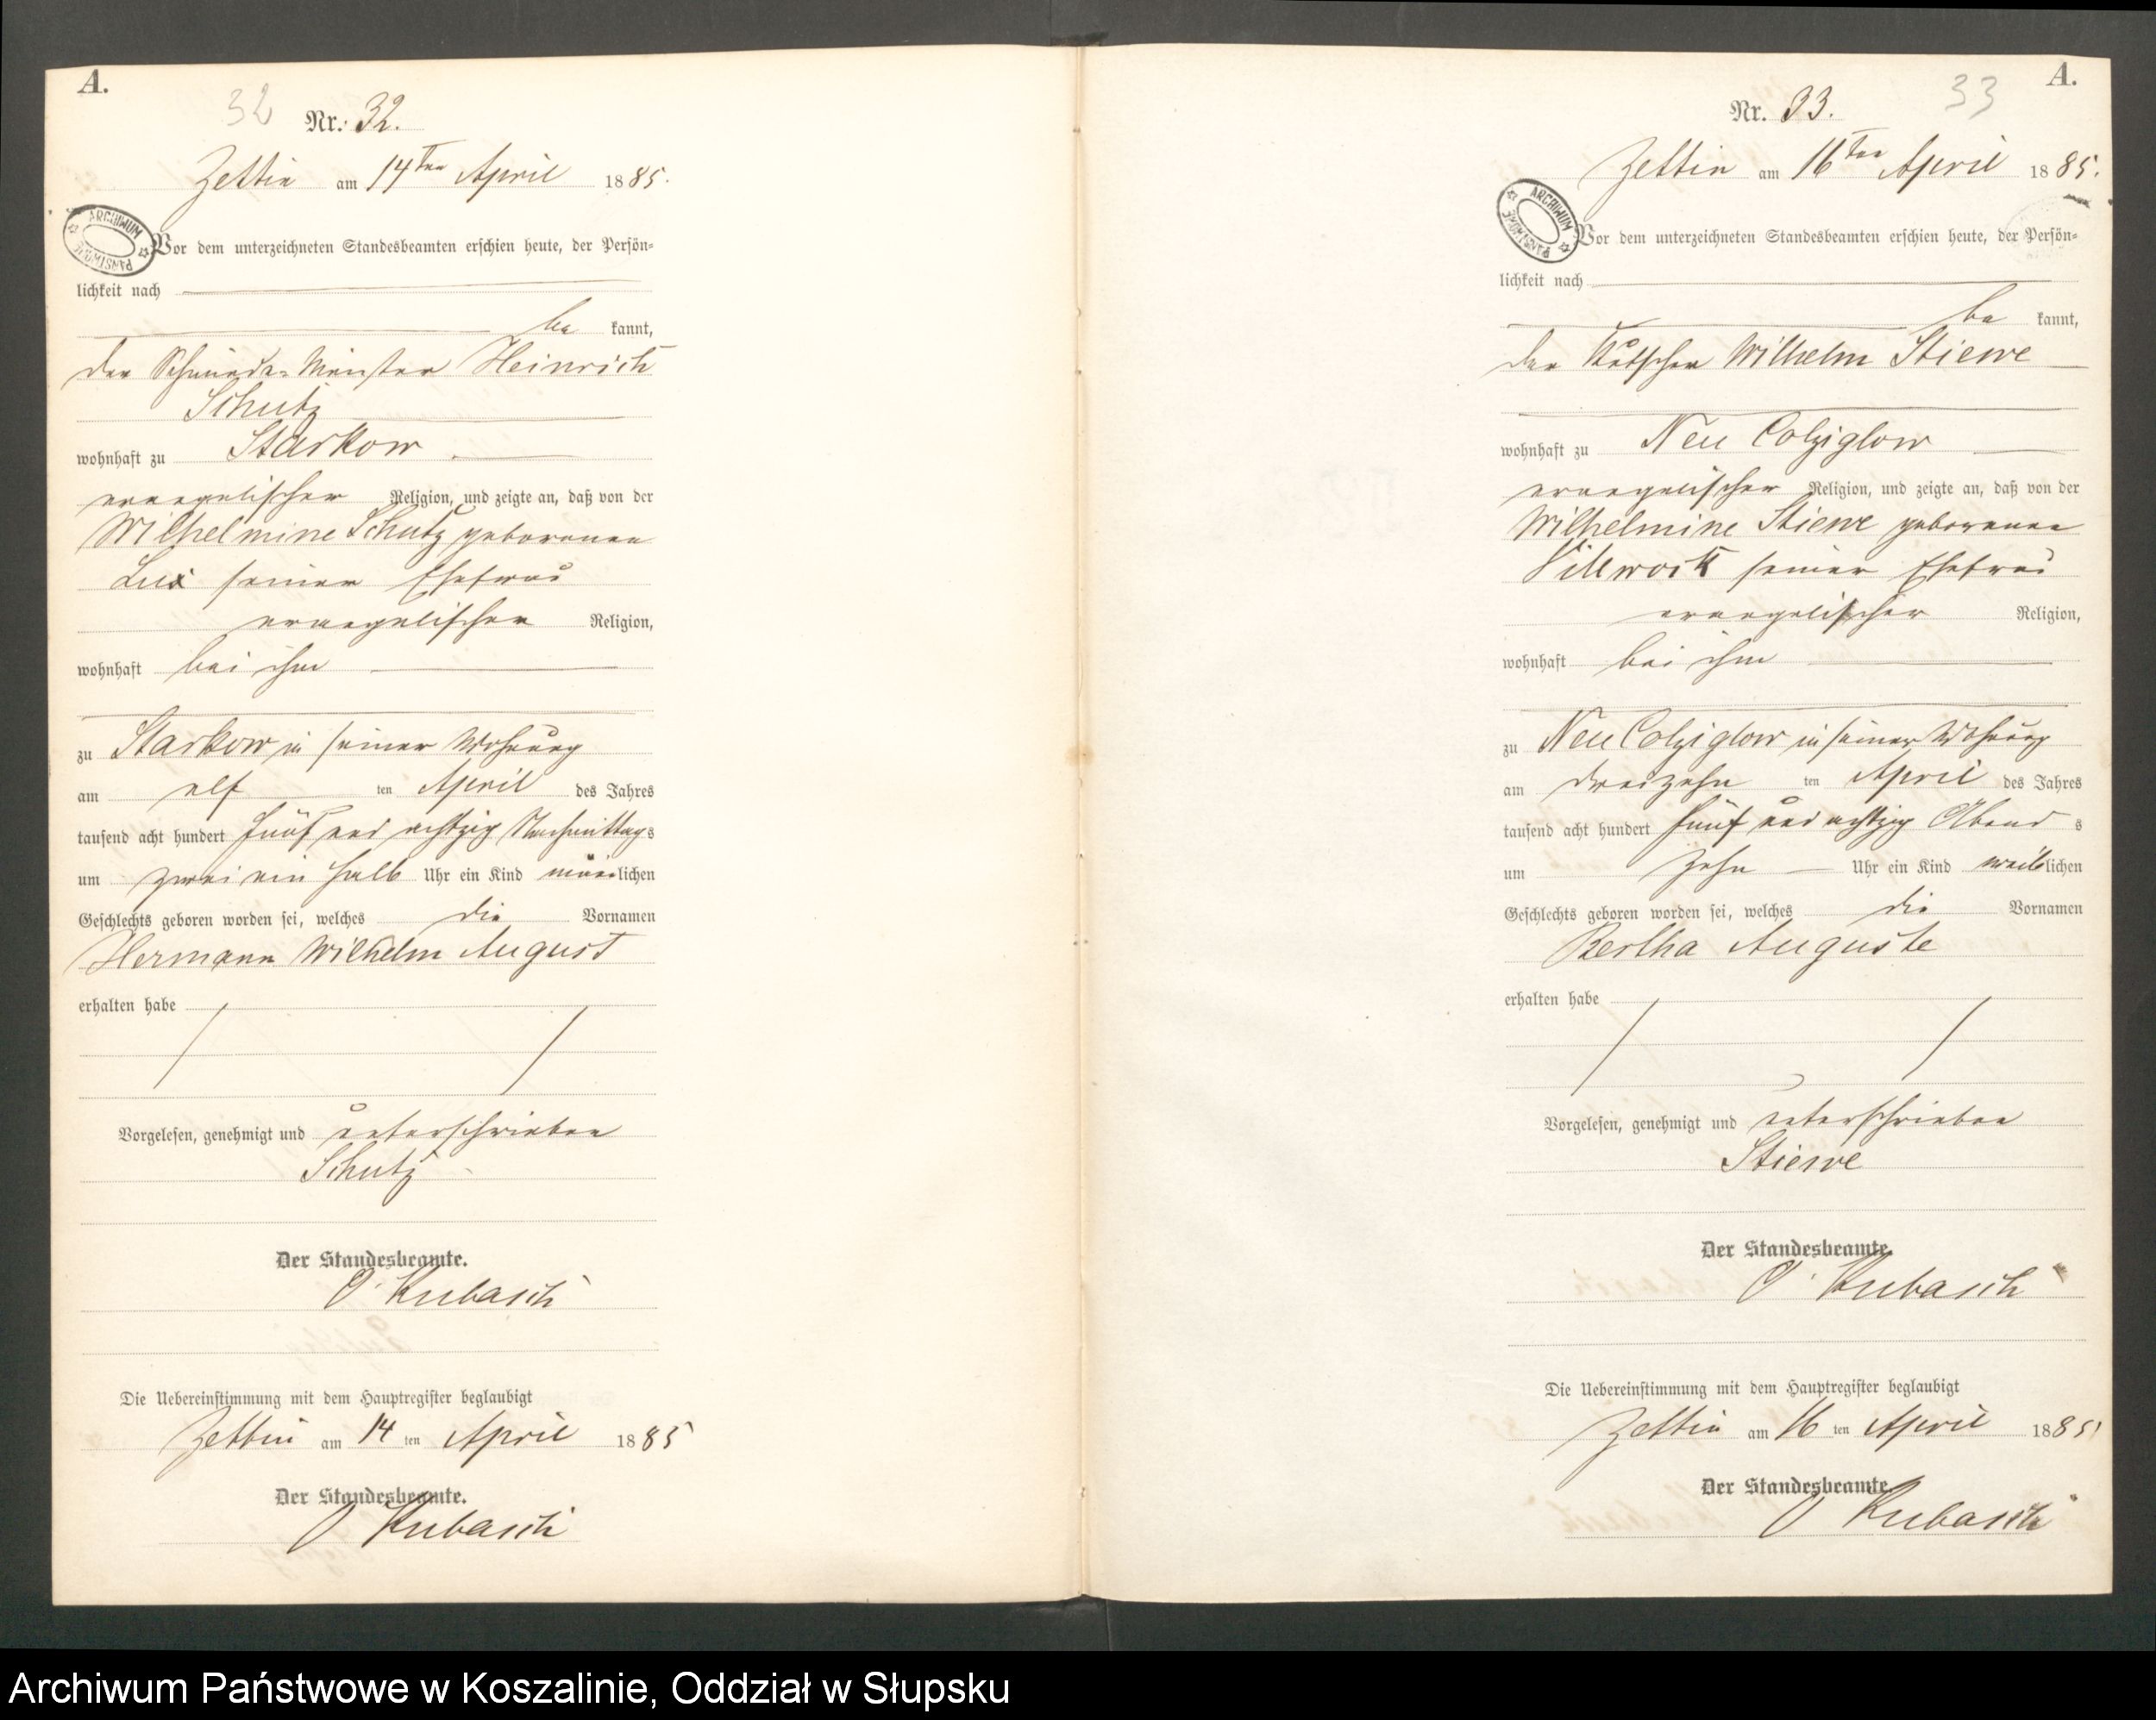 A.
32
Nr. 32.
Zettin am 14ten April 1885.
ARCHIWUM PAŃSTWOWE
Vor dem unterzeichneten Standesbeamten erschien heute, der Persön=
lichkeit nach
be kannt,
der Schmiede=Meister Heinrich
Schutz
wohnhaft zu Starkow
evangelischer Religion, und zeigte an, daß von der
Wilhelmine Schutz geborenen
Lux seiner Ehefrau
evangelischer Religion,
wohnhaft bei ihm
zu Starkow in seiner Wohnung
am elf ten April des Jahres
tausend acht hundert fünf und achtzig Nachmittags
um zwei ein halb Uhr ein Kind männlichen
Geschlechts geboren worden sei, welches die Vornamen
Hermann Wilhelm August
erhalten habe
Vorgelesen, genehmigt und unterschrieben
Schutz
Der Standesbeamte.
Kubasch
Die Uebereinstimmung mit dem Hauptregister beglaubigt
Zettin am 14 ten April 1885
Der Standesbeamte.
Kubasch
A.
33
Nr. 33.
Zettin am 16ten April 1885.
ARCHIWUM PAŃSTWOWE
Vor dem unterzeichneten Standesbeamten erschien heute, der Persön=
lichkeit nach
be kannt,
der Kutscher Wilhelm Stiewe
wohnhaft zu Neu Colziglow
evangelischer Religion, und zeigte an, daß von der
Wilhelmine Stiewe geborenen
Villwock seiner Ehefrau
evangelischer Religion,
wohnhaft bei ihm
zu Neu Colziglow in seiner Wohnung
am dreizehn ten April des Jahres
tausend acht hundert fünf und achtzig Abends
um zehn Uhr ein Kind weiblichen
Geschlechts geboren worden sei, welches die Vornamen
Bertha Auguste
erhalten habe
Vorgelesen, genehmigt und unterschrieben
Stiewe
Der Standesbeamte.
Kubasch
Die Uebereinstimmung mit dem Hauptregister beglaubigt
Zettin am 16 ten April 1885
Der Standesbeamte.
Kubasch
Archiwum Państwowe w Koszalinie, Oddział w Słupsku